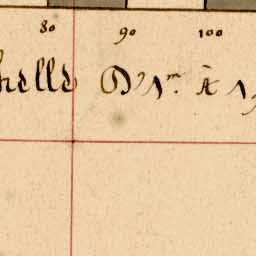 80 90 100
helle D'1.m À 1